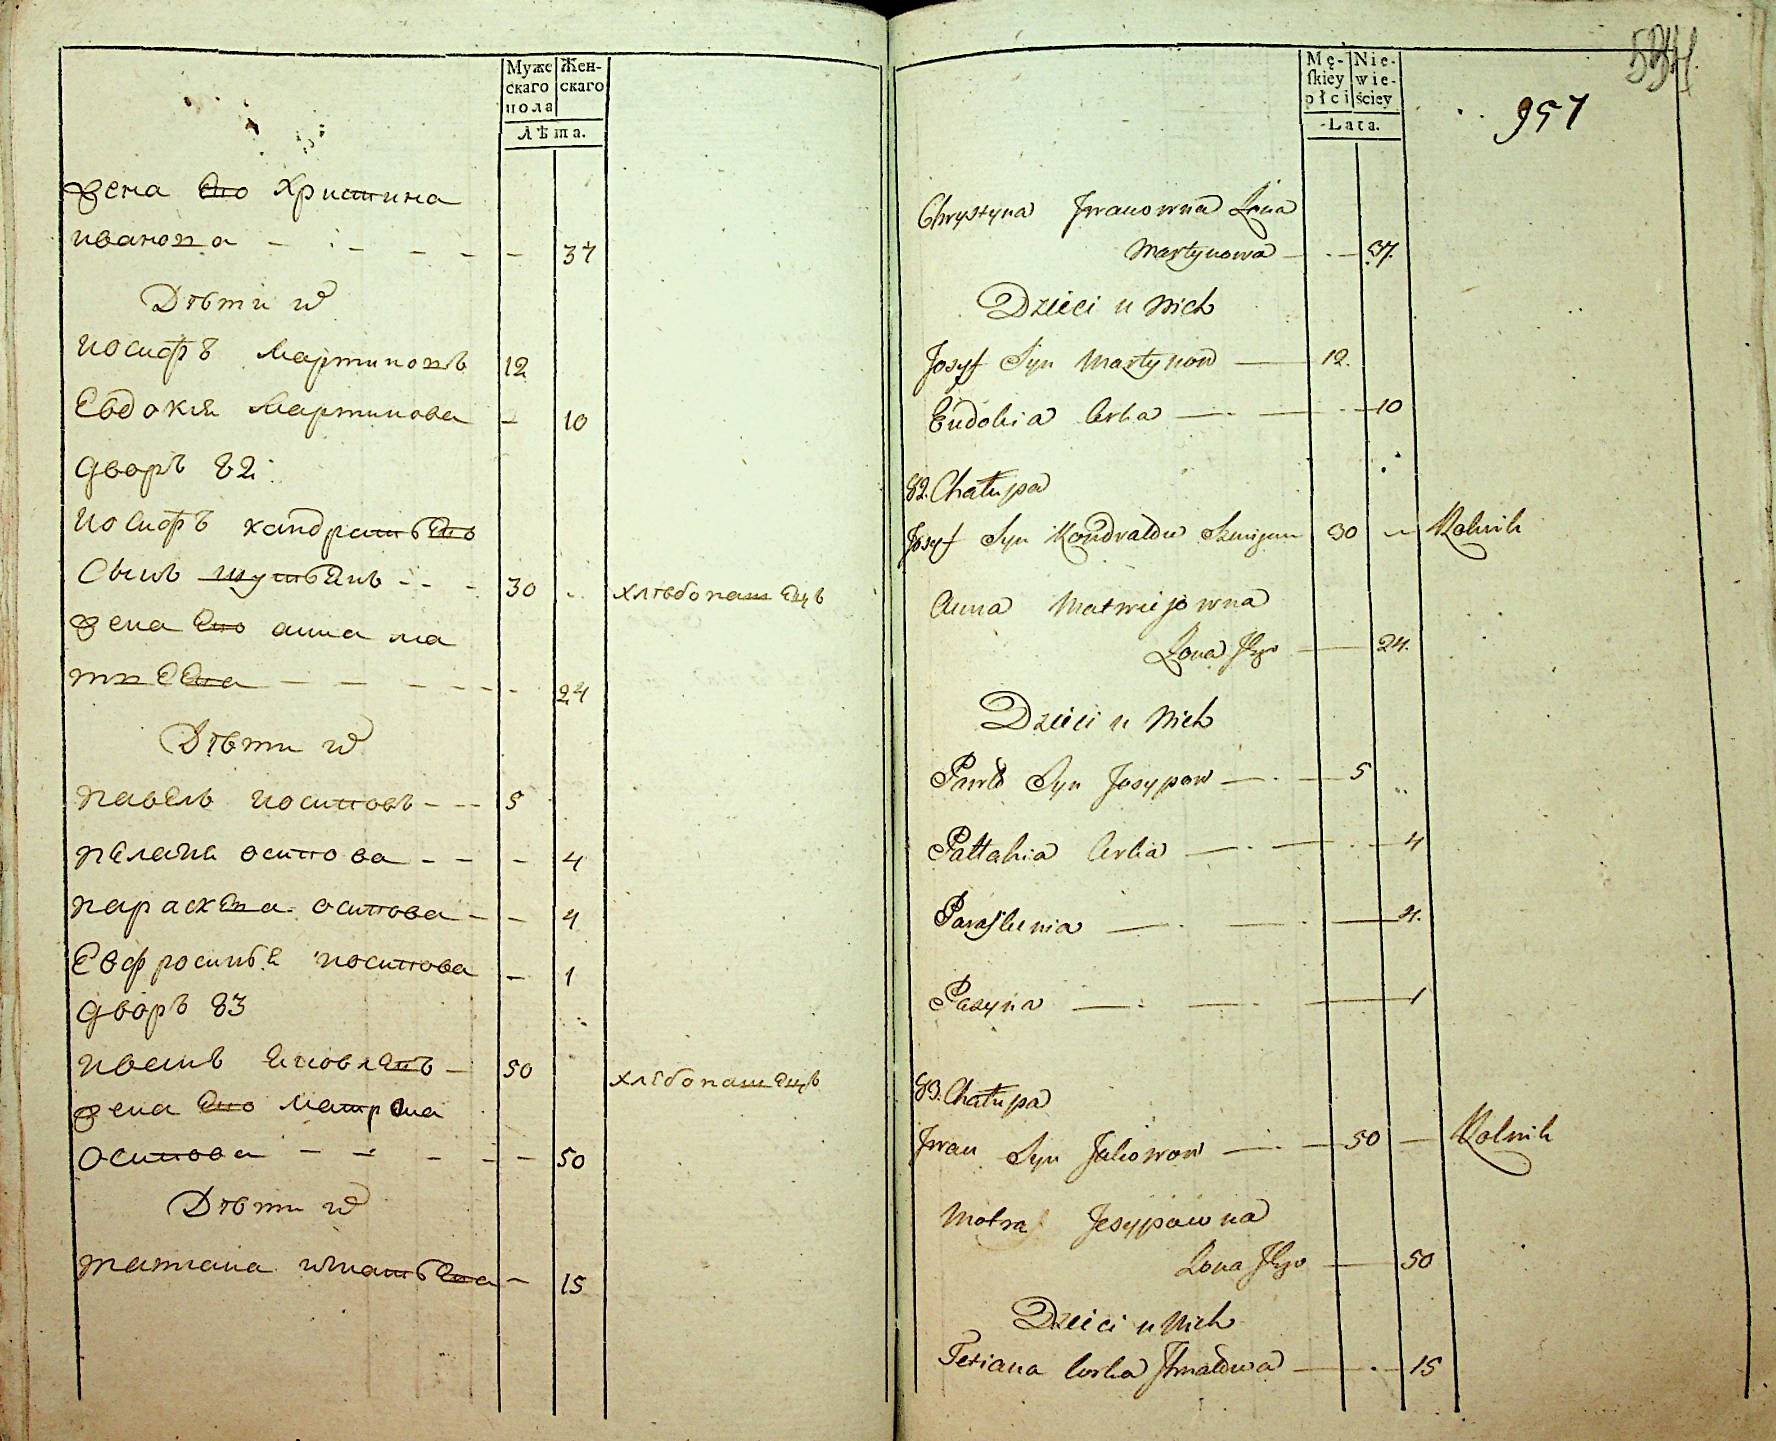 Муже
скаго
пола
Жен-
скаго
Лѣта.
жена его христина
иванова 37
Дѣти и҃
иосифъ мартиновъ 12
Евдокия мартинова 10
дворъ 82:
иосифъ кандратьевъ
сынъ 30 хлѣбопашецъ
жена его анна ма
твеева 24
Дѣти и҃
павелъ иосиповъ 5
пелагия осипова 4
параскева осипова 4
Евфросинья иосипова 1
дворъ 83
иванъ яковлевъ 50 хлѣбопашецъ
жена его матрона
осипова 50
Дѣти и҃
татиана игнатьева 15
Mę-
skiey
płci
Nie-
wie-
ściey
Lata.
534
957
Chrystyna Jwanowna Zona
Martynowa 37.
Dzieci u Nich
Josyf Syn Martynow 12.
Eudokia Corka 10
82. Chałupa
Josyf Syn Kondratów 30 Rolnik
Anna Matwiejowna
Zona Jego 24.
Dzieci u Nich
Pawło Syn Josypow 5
Pallahia Corka 4
Paraskewia 4.
1
83. Chałupa
Jwan Syn Jakowow 50 Rolnik
Motra Jesypowna
Zona Jego 50
Dzieci u Nich
Tetiana Corka 15